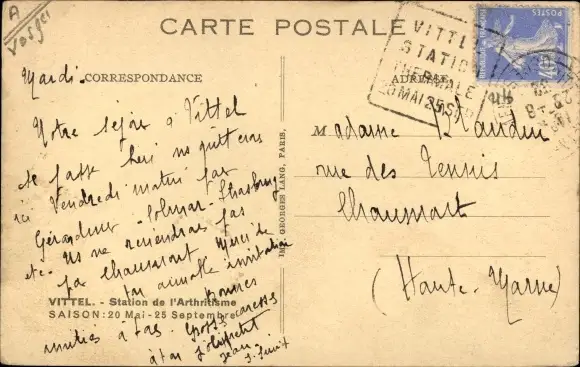 A
Vosges
CARTE POSTALE
CORRESPONDANCE
ADRESSE
VITTEL
STATION
THERMALE
20 MAI 25 SEP
POSTES
Mardi.
Notre séjour à Vittel
se passe bien ns quitterons
ici Vendredi matin par
Gérardmer - Colmar - Strasbourg
etc. Ns ne reviendrons pas
par Chaumont Merci de
ton aimable invitation
Bonnes
amitiés à tes. Grosses caresses
à ton
Jean
Madame Blandin
rue des Tennis
Chaumont
(Haute-Marne)
IMP. GEORGES LANG, PARIS.
VITTEL. - Station de l'Arthritisme
SAISON: 20 Mai - 25 Septembre